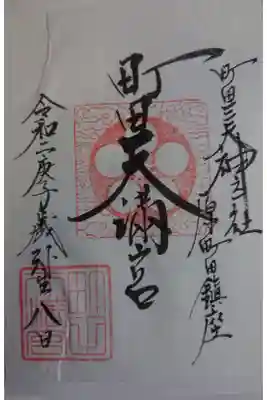 町田三天神 社
原町田鎮座
町田天満宮
令和二庚子歳 八日